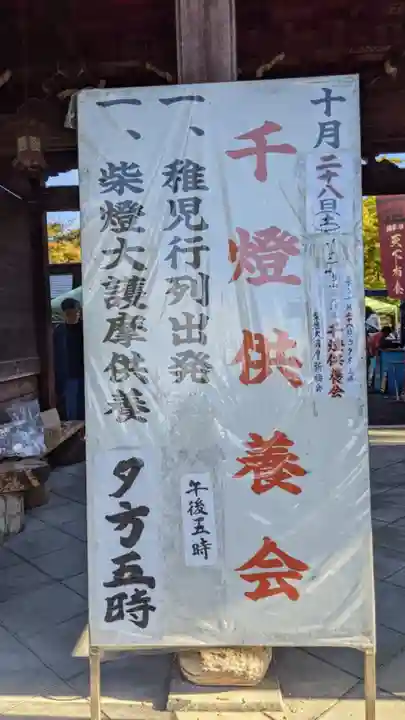 十月二十八日(土)
千燈供養会
千燈供養会
一、稚児行列出発
午後五時
一、柴燈大護摩供養
夕方五時